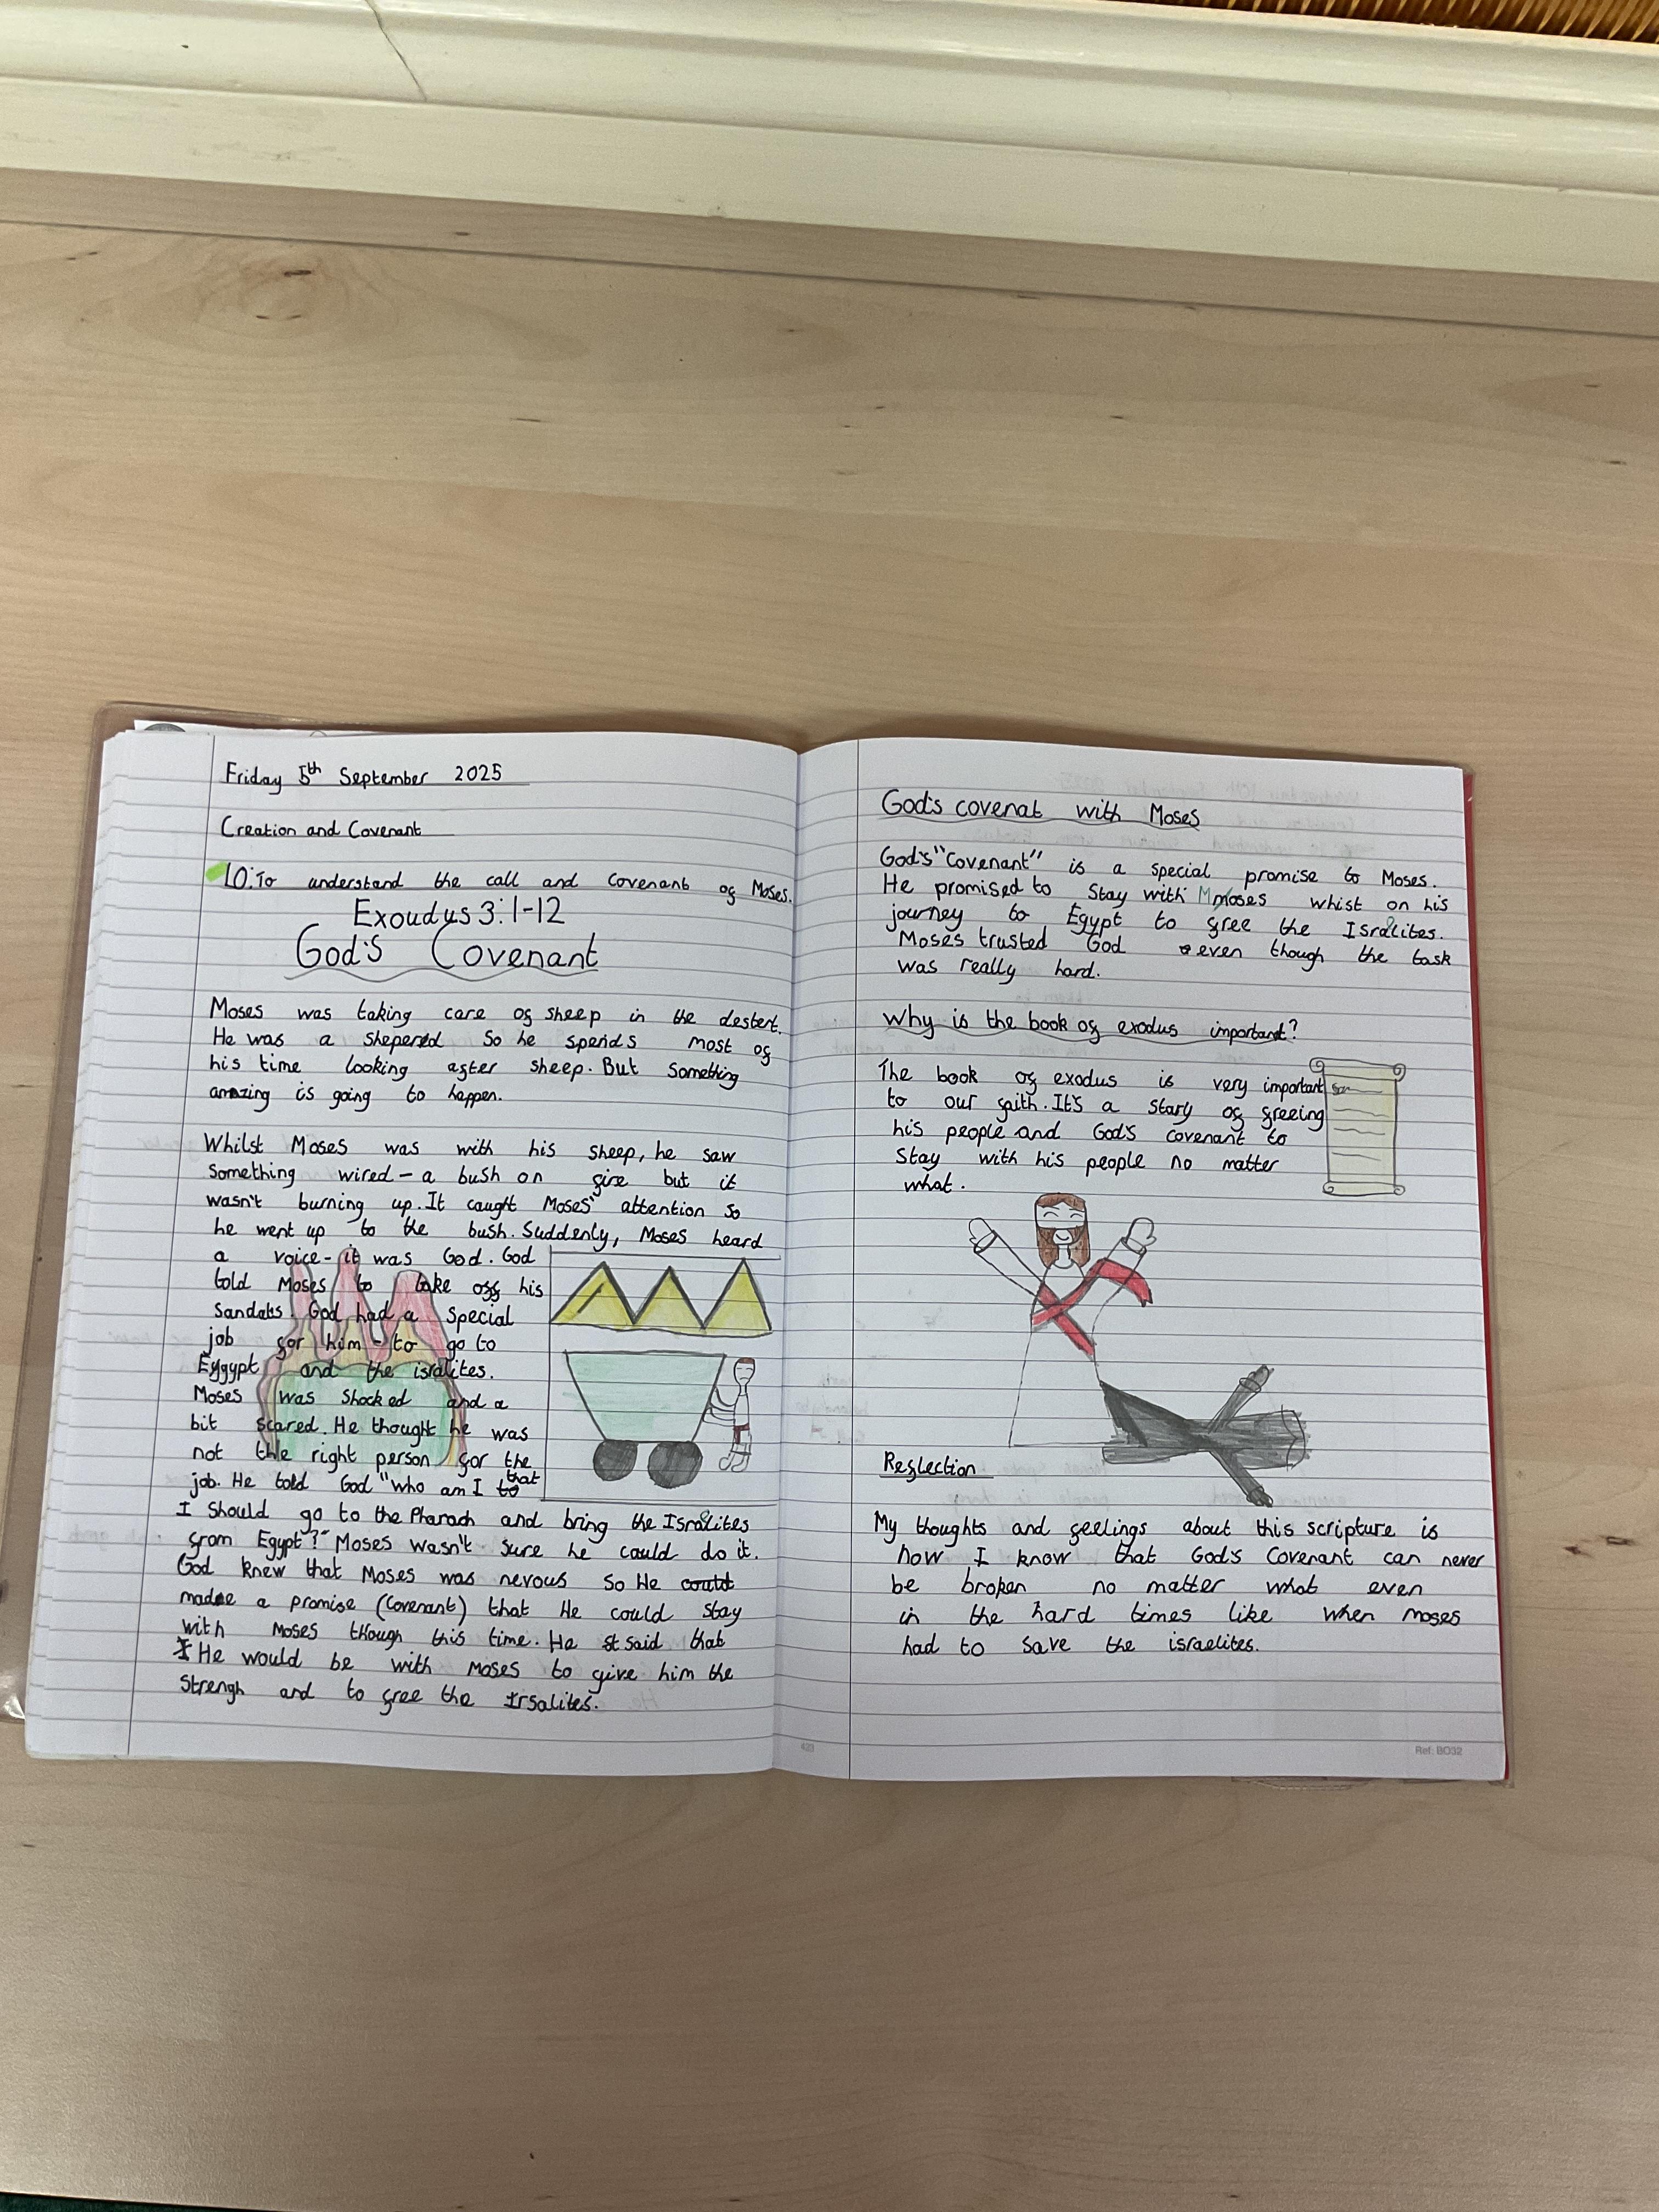 Friday 5th September 2025
Creation and Covenant
LO: To understand the call and covenant of Moses.
Exoudus 3:1-12
God's Covenant
Moses was taking care of sheep in the destert.
He was a sheperd so he spends most of
his time looking after sheep. But something
amazing is going to happen.
Whilst Moses was with his sheep, he saw
something wired – a bush on fire but it
wasn't burning up. It caught Moses' attention so
he went up to the bush. Suddenly, Moses heard
a voice - it was God. God
told Moses to take off his
sandals. God had a special
job for him - to go to
Egypt and the isralites.
Moses was shocked and a
bit scared. He thought he was
not the right person for the
job. He told God "who am I to that
I should go to the Pharaoh and bring the Israelites
from Egypt?" Moses wasn't sure he could do it.
God knew that Moses was nevous so He could
made a promise (covenant) that He could stay
with Moses though this time. He st said that
I He would be with Moses to give him the
strengh and to free the Irsalites.
God's covenat with Moses
God's "covenant" is a special promise to Moses.
He promised to stay with Moses whist on his
journey to Egypt to free the Israelites.
Moses trusted God even though the task
was really hard.
Why is the book of exodus important?
The book of exodus is very important
to our faith. It's a story of freeing
his people and God's covenant to
stay with his people no matter
what.
Reflection
My thoughts and feelings about this scripture is
how I know that God's covenant can never
be broken no matter what even
in the hard times like when moses
had to save the israelites.
423
Ref: BO32